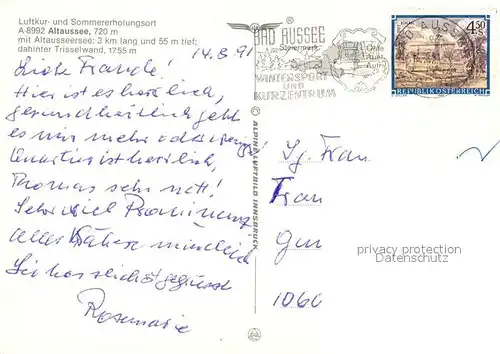 Luftkur- und Sommererholungsort
A-8992 Altaussee, 720 m
mit Altausseersee: 3 km lang und 55 m tief;
dahinter Trisselwand, 1755 m
BAD AUSSEE
Steiermark
WINTERSPORT
UND
KURZENTRUM
4,50
REPUBLIK ÖSTERREICH
14.8.91
Hier ist es herrlich,
gesundheitlich geht
es mir mehr oder weniger!
Quartier ist herrlich,
Thomas sehr nett!
Sehr viel
Alles mündlich
Sei herzlichst gegrüsst
Rosemarie
ALPINE LUFTBILD INNSBRUCK
Frau
1060
privacy protection
Datenschutz